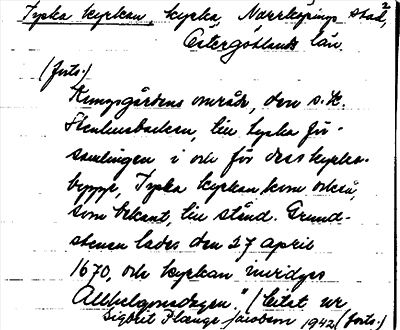 2
Tyska kyrkan, kyrka, Norrköpings stad,
Östergötlands län.
(forts.)
Kungsgårdens område, den s.k.
Stenhusbacken, till tyska för-
samlingen i och för dess kyrko-
bygge, Tyska kyrkan kom också,
som bekant, till stånd. Grund-
stenen lades den 27 april
1670, och kyrkan invigdes
Allhelgonadagen." (Citat ur
Sigbrit Plænge Jacobson 1942 (forts.)